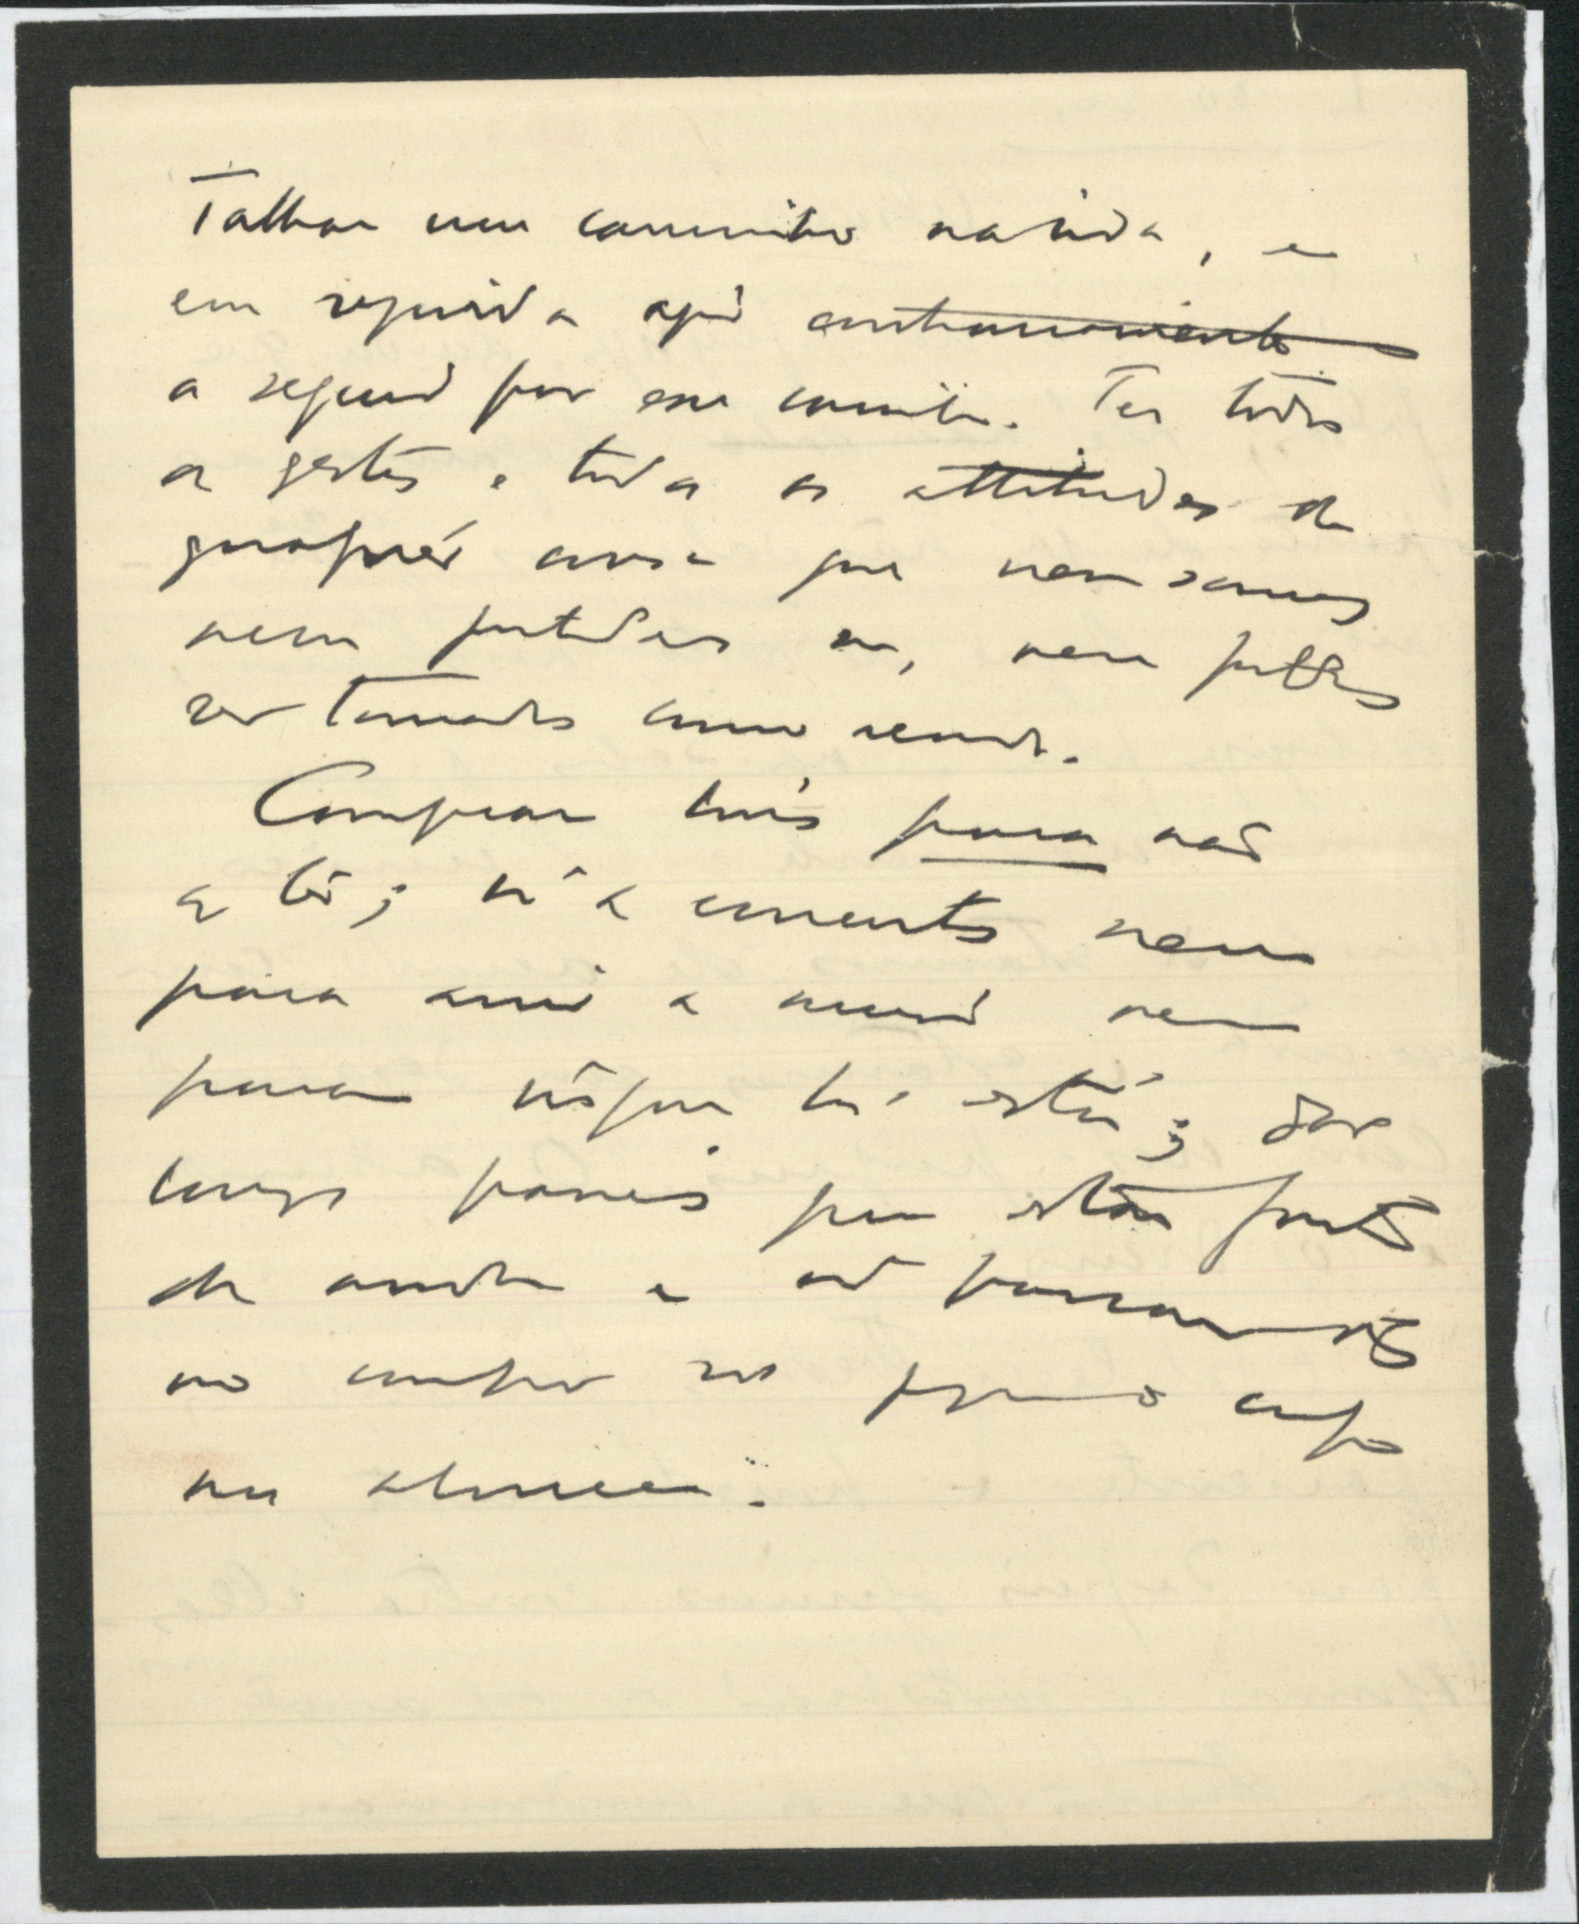 Talhar um caminho na vida, e
em seguida agir contrariamente
a seguir por esse caminho. Ter todos
os gestos e todas as attitudes de
qualquer cousa que nem somos
nem pretendemos ser, nem pretendemos
ser tomados como sendo.
Comprar livros para não
os ler; ir a concertos nem
para ouvir a musica nem
para ver quem lá está; dar
longos passeios por estar farto
de andar e ir passar dias
no campo só porque o campo
nos aborrece.